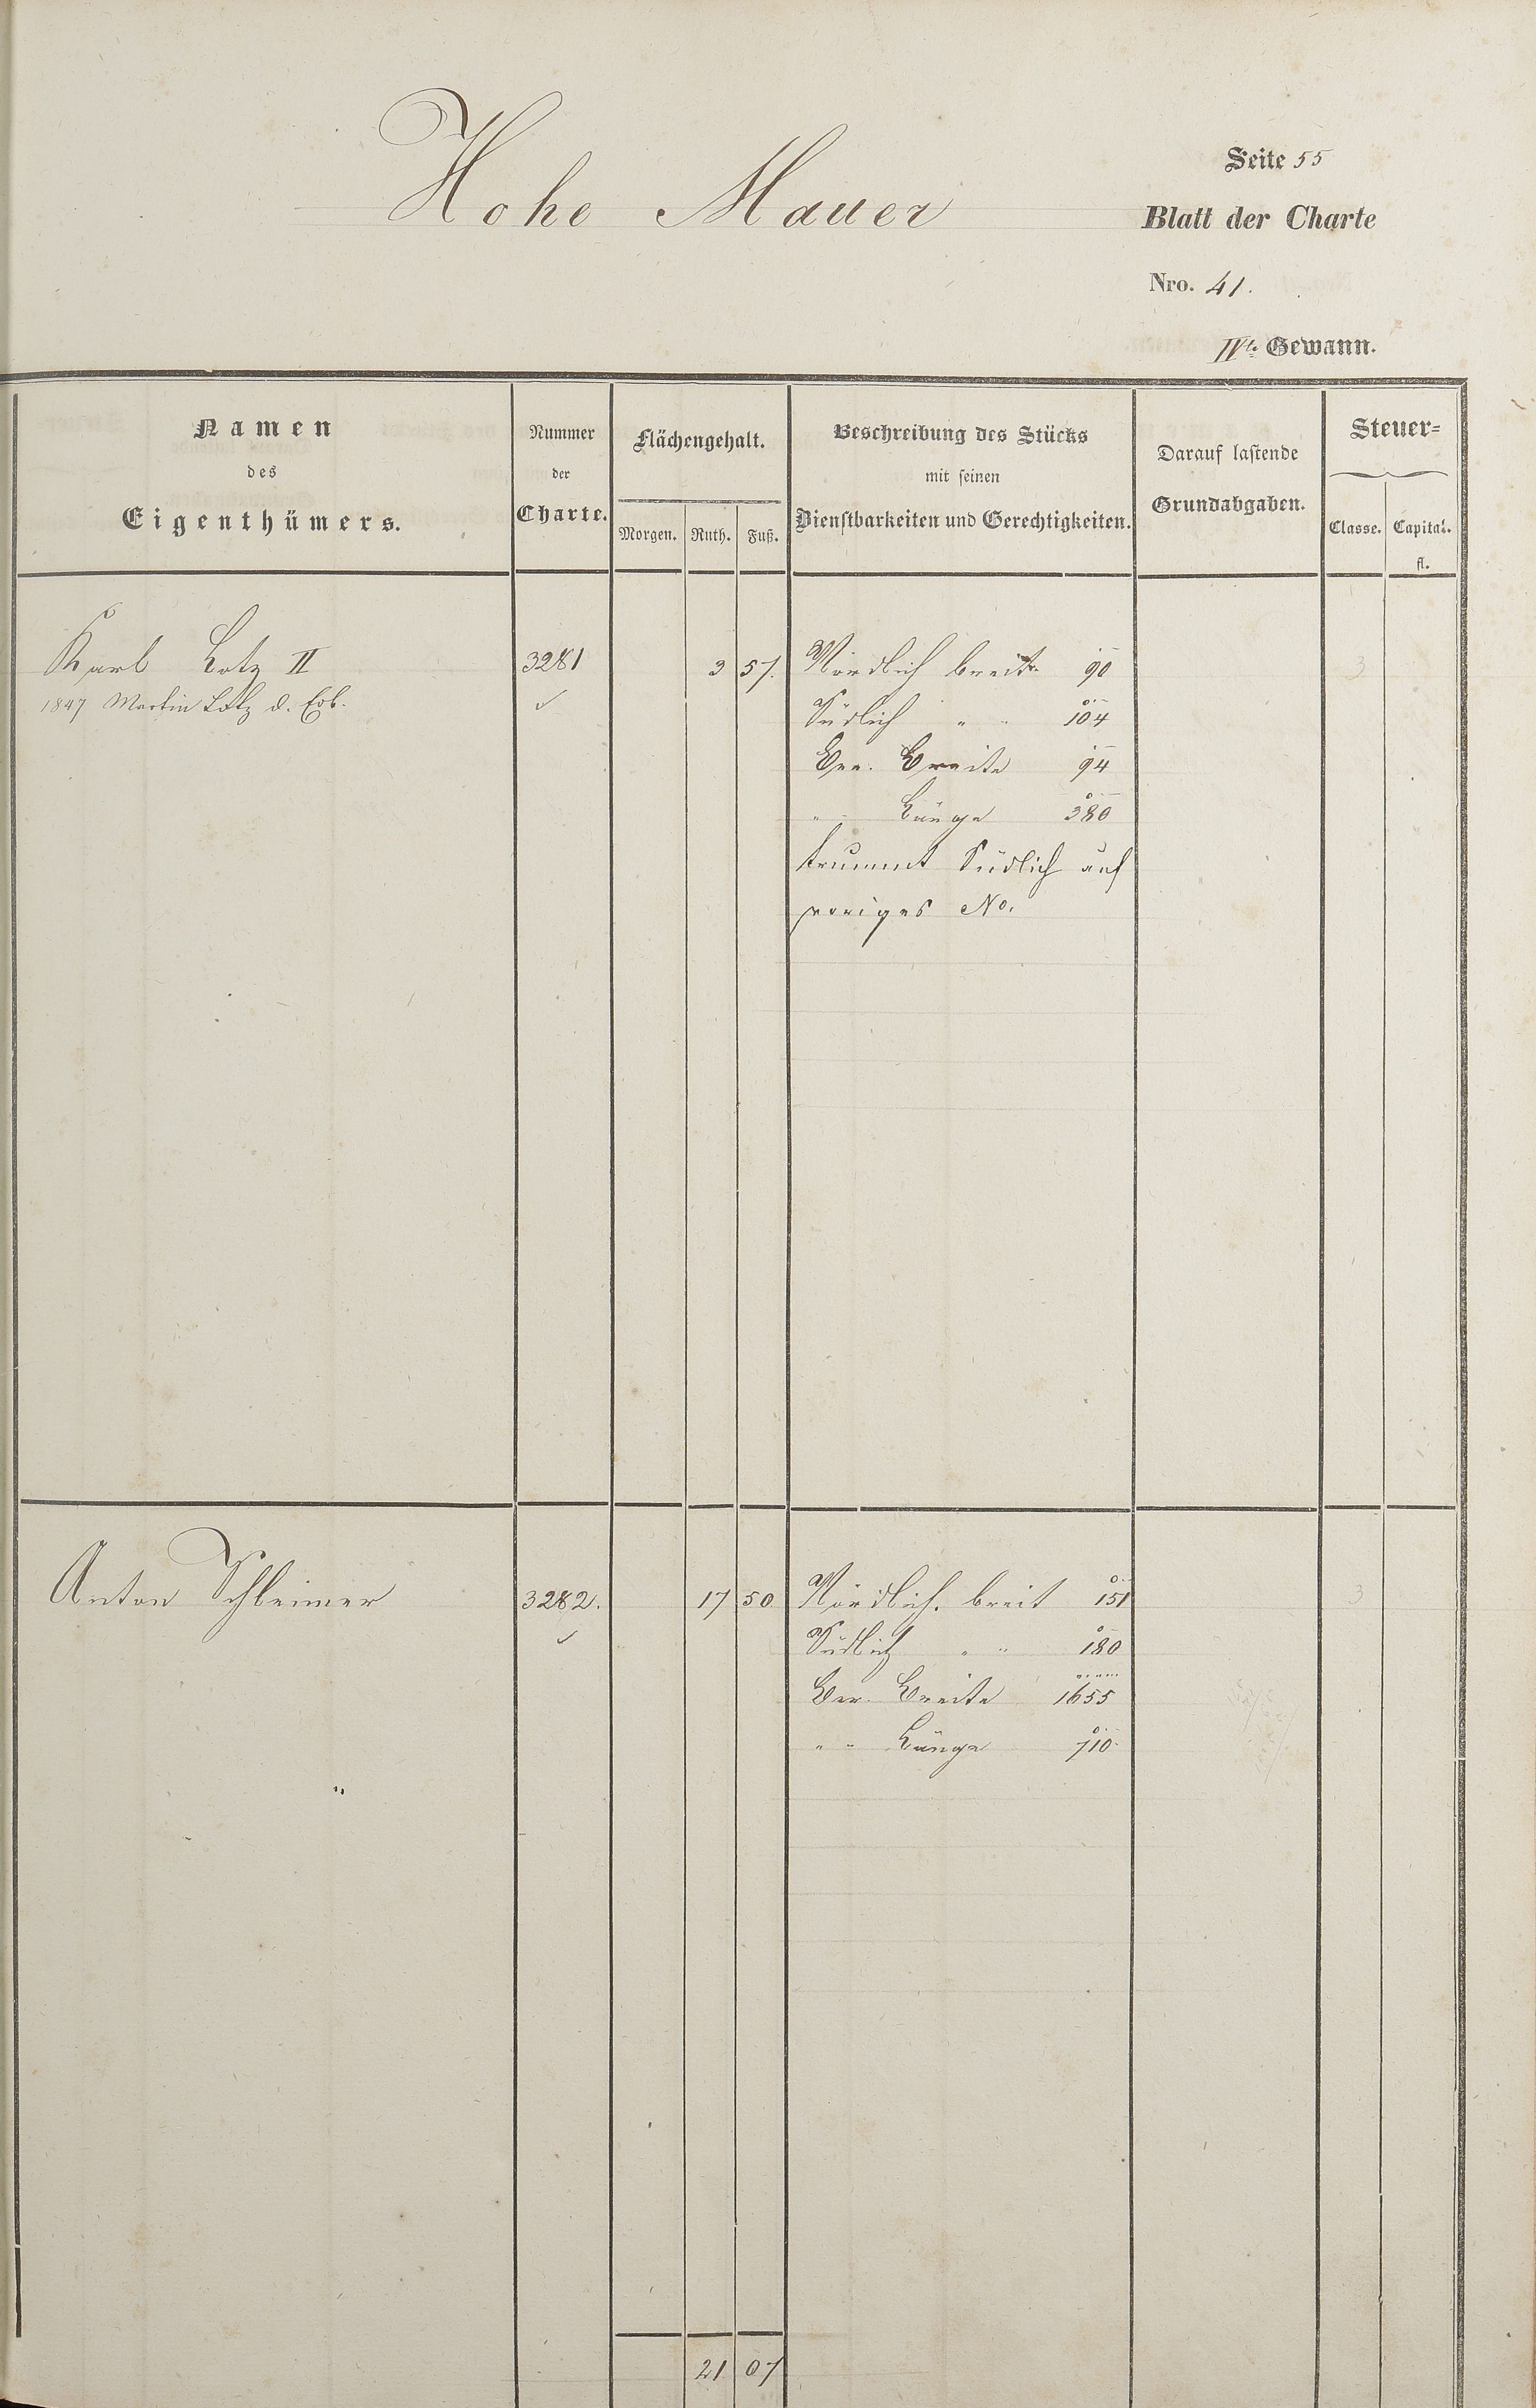 Hohe Mauer
Seite 55
Blatt der Charte
Nro. 41.
IVte Gewann.
Namen
des
Eigenthümers.
Nummer
der
Charte.
Flächengehalt.
Morgen. Ruth. Fuß.
Beschreibung des Stücks
mit seinen
Dienstbarkeiten und Gerechtigkeiten.
Darauf lastende
Grundabgaben.
Steuer=
Classe. Capital.
fl.
Karl Lotz II 3281 3 57. Nördlich breit 90 3
1847 Martin Lotz d. Erb. Südlich " " 104
Ver. Breite 94
" " Länge 380
trummt Südlich auf
voriges No.
Anton Schleimer 3282. 17 50 Nördlich. breit 151 3
Südlich " " 180
Ver. Breite 1655
" " Länge 710
21 07